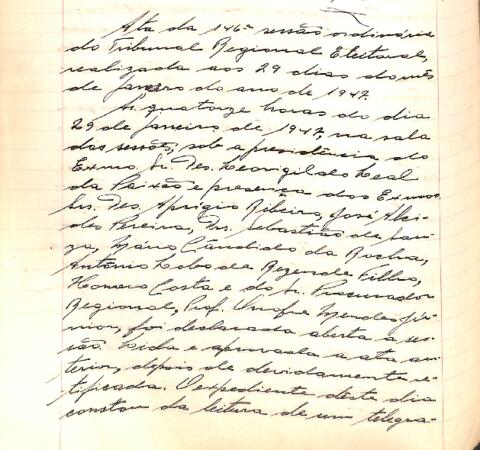 Ata da 146ª sessão ordinária
do Tribunal Regional Eleitoral,
realizada aos 29 dias do mês
de Janeiro do ano de 1947.
Às quatorze horas do dia
29 de Janeiro de 1947, na sala
das sessões, sob a presidência do
Exmo. Sr. Des. Leovigildo Leal
da Paixão e presença dos Exmos.
Srs. Des. Aprigio Ribeiro, José Alci-
des Pereira, Drs. Sebastião de Sou-
za, Mário Cândido da Rocha,
Antônio Lobo de Rezende Filho,
Homero Costa e do Sr. Procurador
Regional, Prof. Onofre Mendes Jú-
nior, foi declarada aberta a ses-
são. Lida e aprovada a ata an-
terior, depois de devidamente re-
tificada. O expediente deste dia
constou da leitura de um telegra-